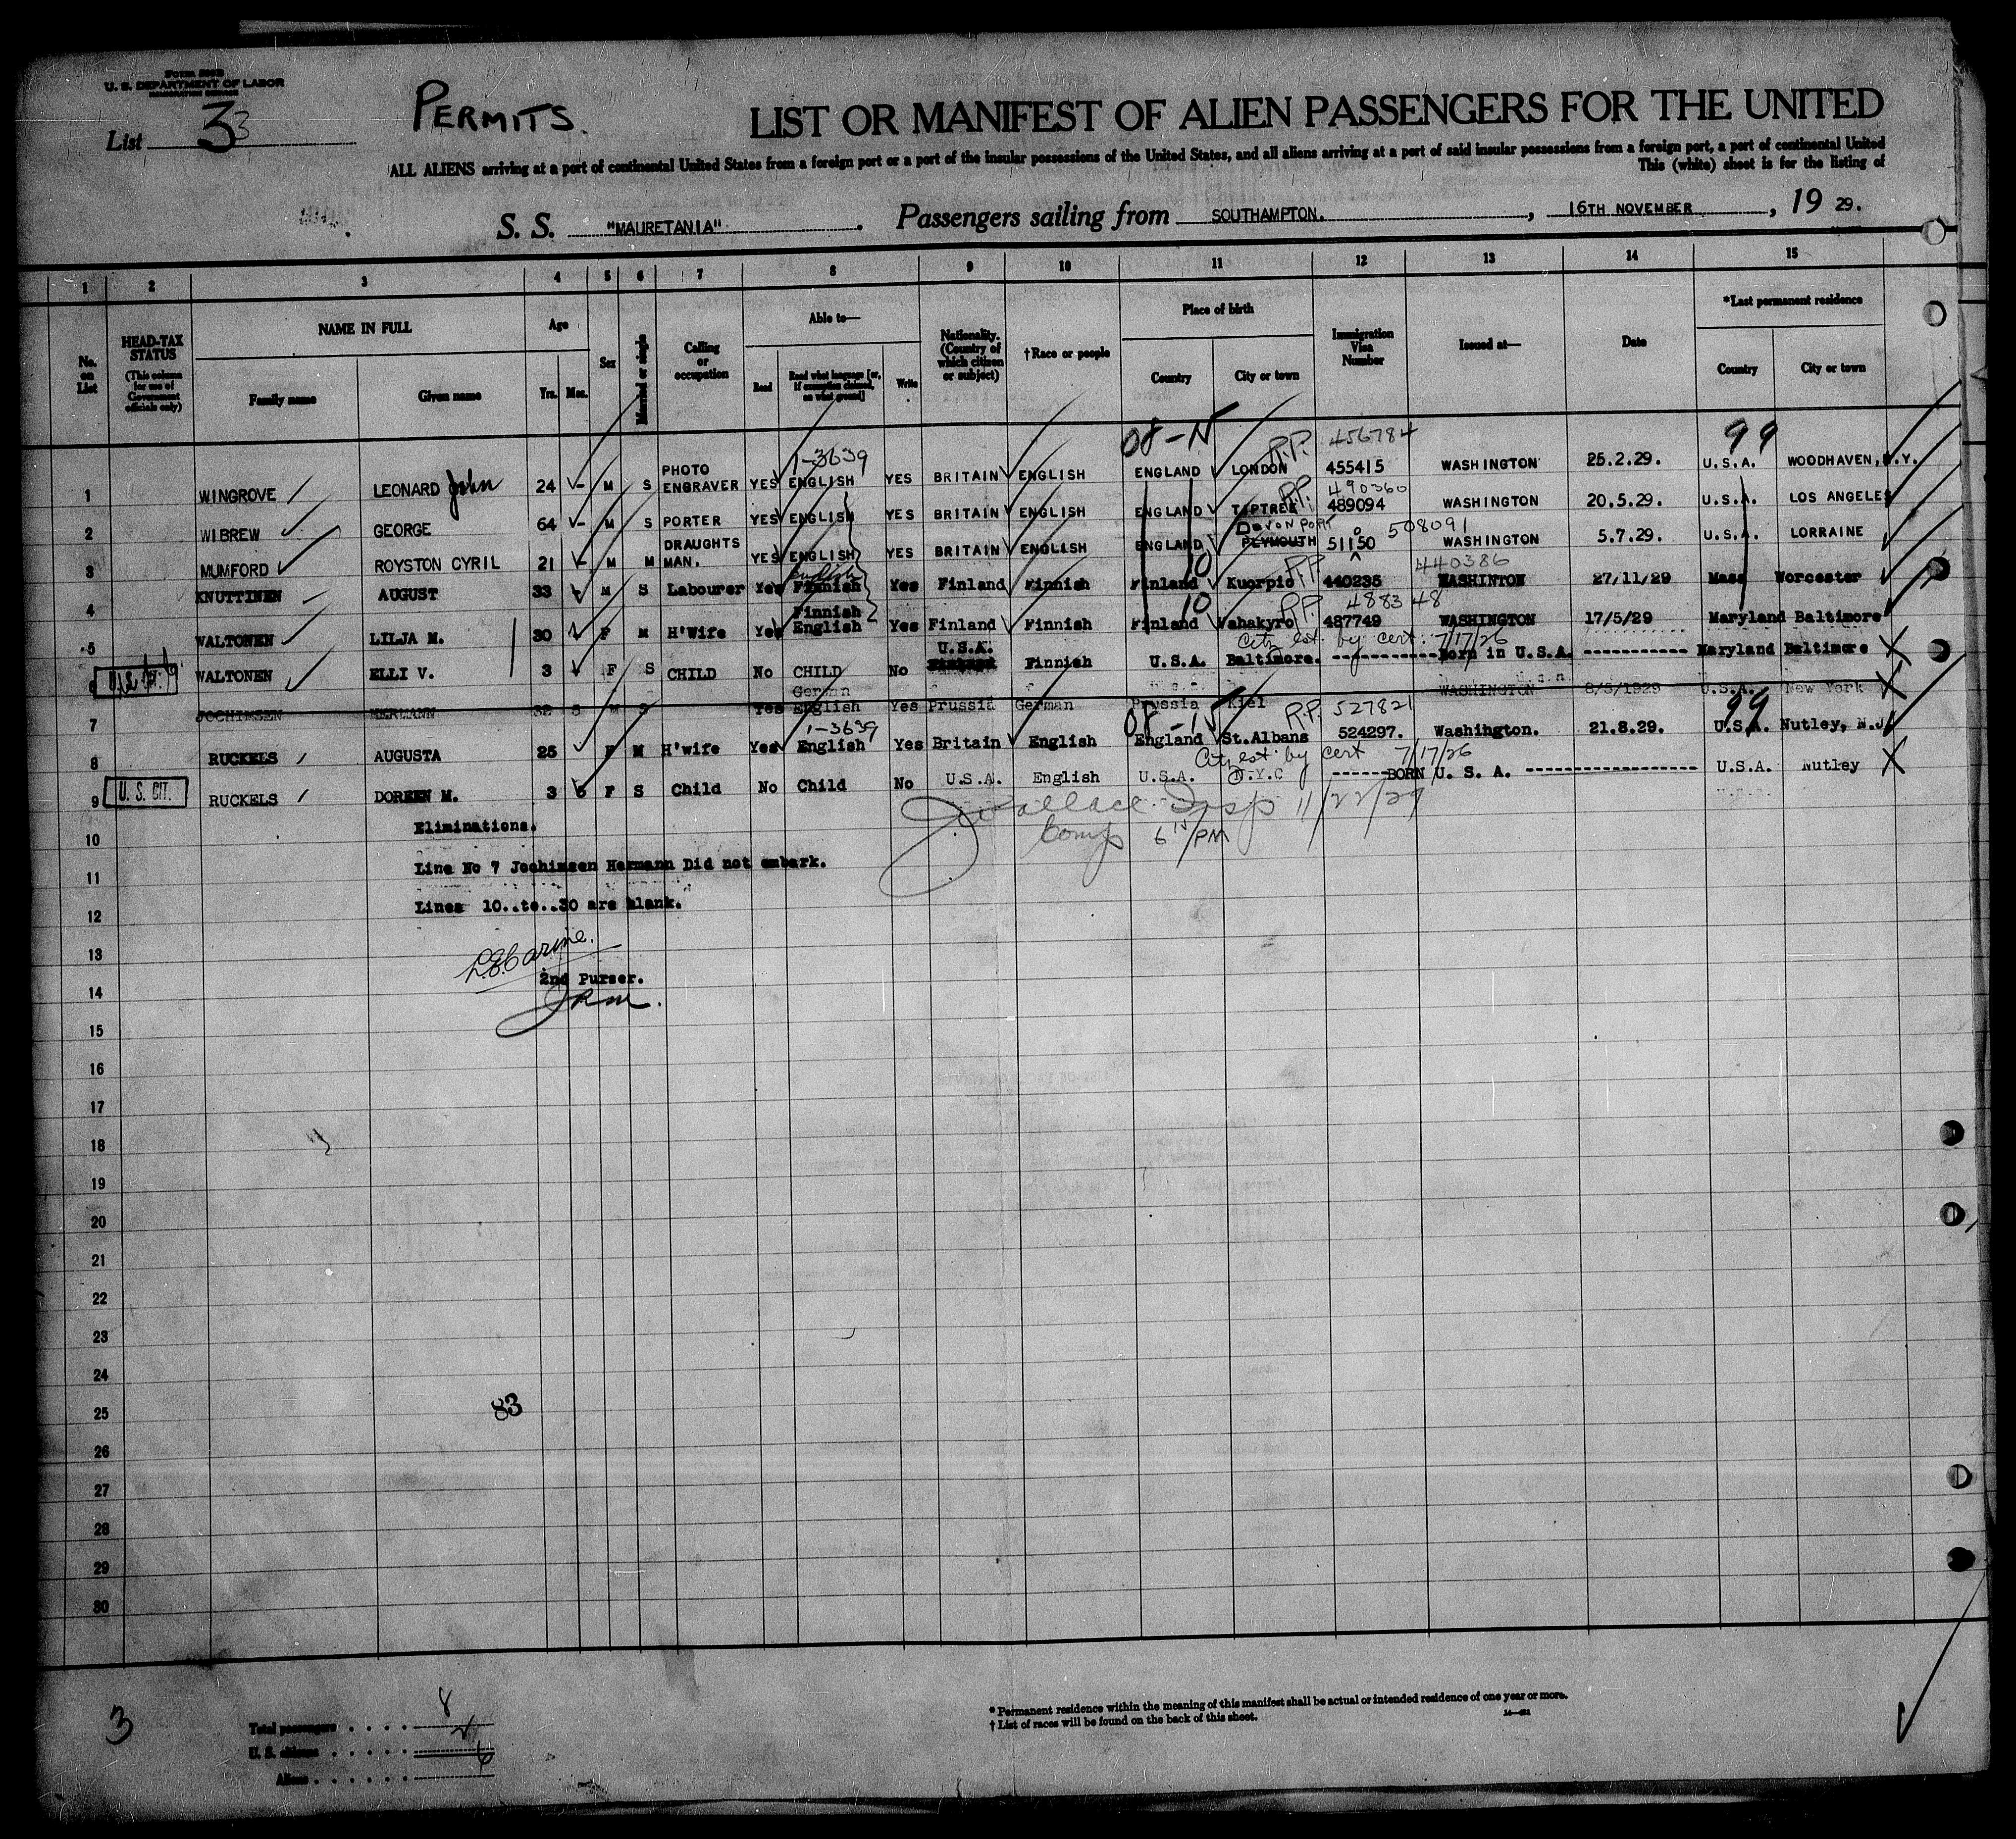 Form 500B
U. S. DEPARTMENT OF LABOR
IMMIGRATION SERVICE
List 33
PERMITS.
LIST OR MANIFEST OF ALIEN PASSENGERS FOR THE UNITED
ALL ALIENS arriving at a port of continental United States from a foreign port or a port of the insular possessions of the United States, and all aliens arriving at a port of said insular possessions from a foreign port, a port of continental United
This (white) sheet is for the listing of
S. S. "MAURETANIA". Passengers sailing from SOUTHAMPTON. , 16TH NOVEMBER , 19 29.
1 2 3 4 5 6 7 8 9 10 11 12 13 14 15
No. on List
HEAD-TAX STATUS (This column for use of Government officials only)
NAME IN FULL Family name Given name
Age Yrs. Mos.
Sex
Married or single
Calling or occupation
Able to— Read Read what language [or, if exemption claimed, on what ground] Write
Nationality. (Country of which citizen or subject)
†Race or people
Place of birth Country City or town
Immigration Visa Number
Issued at—
Date
*Last permanent residence Country City or town
08-15 R.P. 456784 99
1-3639
1 WINGROVE LEONARD John 24 - M S PHOTO ENGRAVER YES ENGLISH YES BRITAIN ENGLISH ENGLAND LONDON 455415 WASHINGTON 25.2.29. U.S.A. WOODHAVEN, N.Y.
R.P. 490360
2 WIBREW GEORGE 64 - M S PORTER YES ENGLISH YES BRITAIN ENGLISH ENGLAND TIPTREE 489094 WASHINGTON 20.5.29. U.S.A. LOS ANGELES
DEVONPORT 0 508091
3 MUMFORD ROYSTON CYRIL 21 - M M DRAUGHTS MAN. YES ENGLISH YES BRITAIN ENGLISH ENGLAND PLYMOUTH 51150 WASHINGTON 5.7.29. U.S.A. LORRAINE
English 10 R.P. 440386
4 KNUTTINEN AUGUST 33 - M S Labourer Yes Finnish Yes Finland Finnish Finland Kuorpio 440235 WASHINTON 27/11/29 Mass Worcester
10 R.P. 488348
5 WALTONEN LILJA M. 30 F M H'Wife Yes Finnish English Yes Finland Finnish Finland Vahakyro 487749 WASHINGTON 17/5/29 Maryland Baltimore
Citz est. by cert. 7/17/26
6 WALTONEN ELLI V. 3 F S CHILD No CHILD No U.S.A. Finnish U.S.A. Baltimore. ----------Born in U.S.A. ----------- Maryland Baltimore
7 JOCHIMSEN HERMANN 32 M S Yes German English Yes Prussia German Prussia Kiel WASHINGTON 8/3/1929 U.S.A. New York
08-15 R.P. 527821 99
1-3639
8 RUCKELS AUGUSTA 25 F M H'wife Yes English Yes Britain English England St.Albans 524297. Washington. 21.8.29. U.S.A. Nutley, N.J.
Citz est by cert 7/17/26
9 U. S. CIT. RUCKELS DOREEN M. 3 6 F S Child No Child No U.S.A. English U.S.A. N.Y.C ------BORN U. S. A. ----------------- U.S.A. Nutley
J Wallace Insp 11/22/29
Comp 6 15/PM
Eliminations.
10
Line No 7 Jochimsen Hermann Did not embark.
11
Lines 10..to..30 are blank.
12
13
2nd Purser.
14
15
16
17
18
19
20
21
22
23
24
83
25
26
27
28
29
30
3
Total passengers . . . . 8
U. S. citizens . . . . . 2
Aliens . . . . . . 6
* Permanent residence within the meaning of this manifest shall be actual or intended residence of one year or more.
† List of races will be found on the back of this sheet.